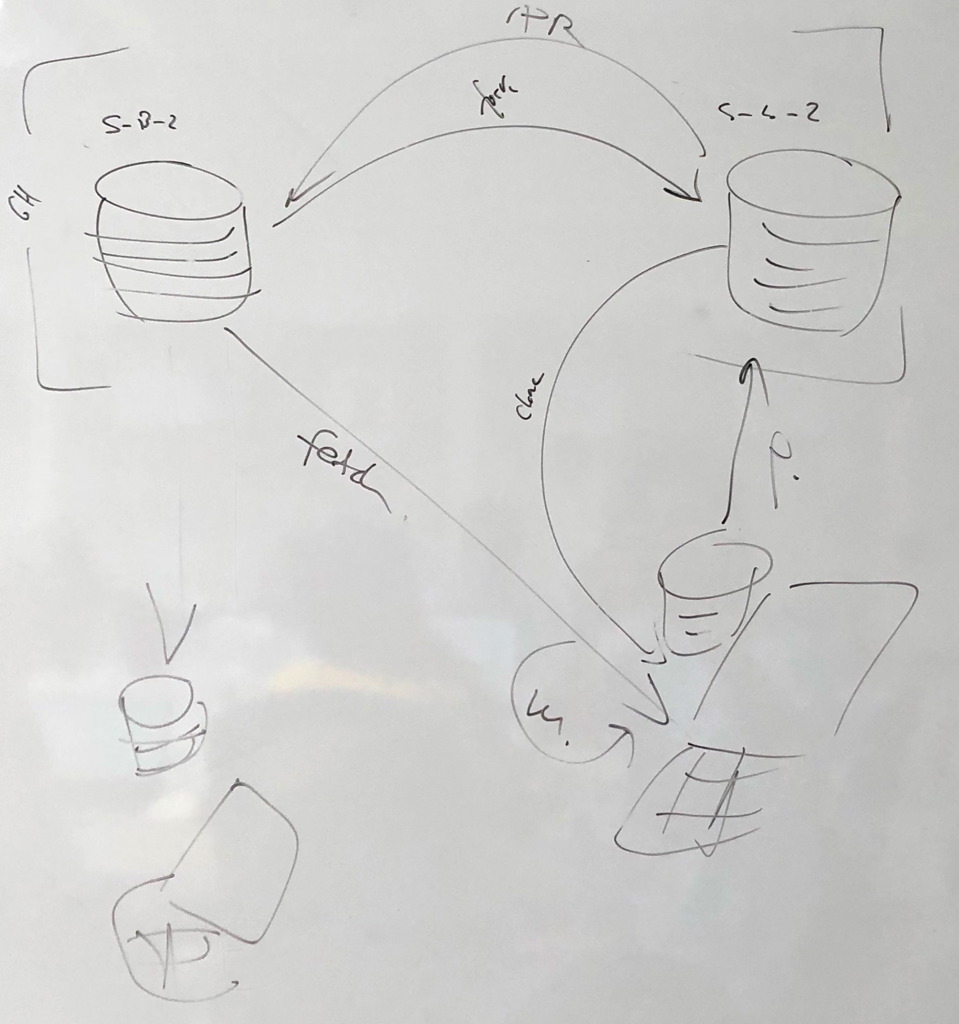 PR
fork
S-B-2
S-L-2
GH
clone
fetch
P.
m.